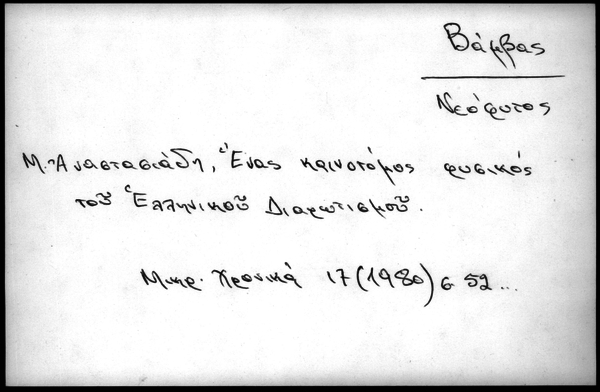 Βάμβας
Νεόφυτος
Μ. Ἀναστασιάδη, Ἕνας καινοτόμος φυσικός
τοῦ Ἑλληνικοῦ Διαφωτισμοῦ.
Μικρ. Χρονικά 17 (1980) σ 52 ...